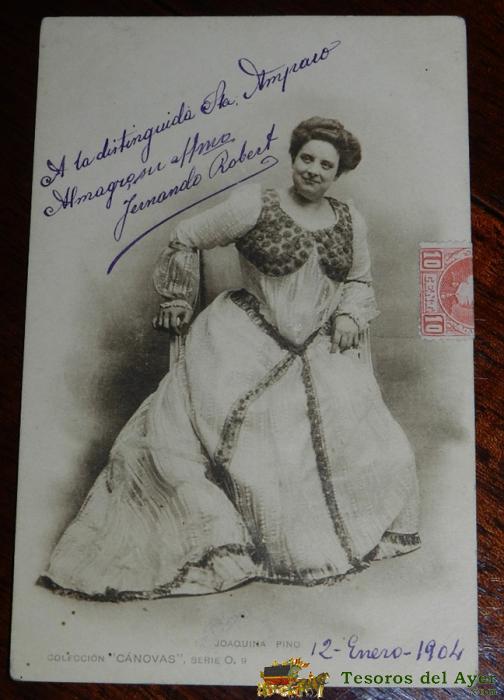 A la distinguida Sta. Amparo
Almagro, su affmo
Fernando Robert
10
CENT.
10
JOAQUINA PINO
COLECCIÓN "CÁNOVAS", SERIE O. 9
12-Enero-1904
Tesoros del Ayer
.com